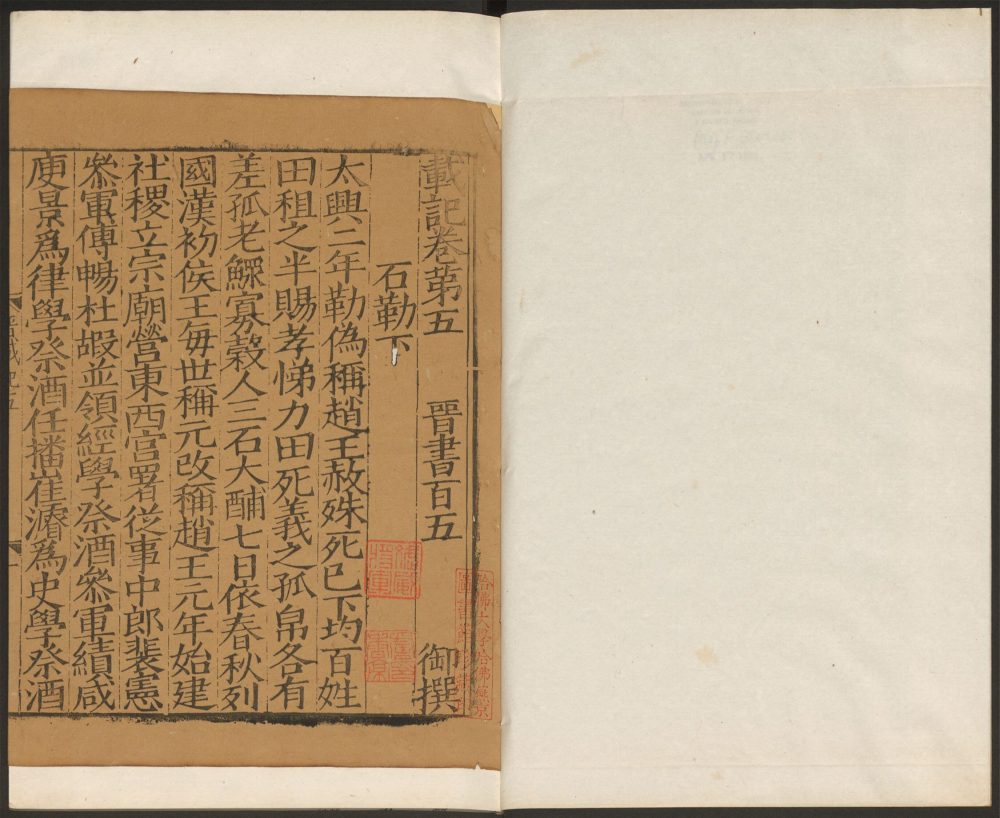 載記卷第五 晉書百五 御撰
石勒下
太興二年勒偽稱趙王赦殊死已下均百姓
田租之半賜孝悌力田死義之孤帛各有
差孤老鰥寡穀人三石大酺七日依春秋列
國漢初侯王每世稱元改稱趙王元年始建
社稷立宗廟營東西宮署從事中郎裴憲
叅軍傅暢杜嘏並領經學祭酒叅軍續咸
庾景爲律學祭酒任播崔濬爲史學祭酒
哈佛大學哈佛燕京
圖書館